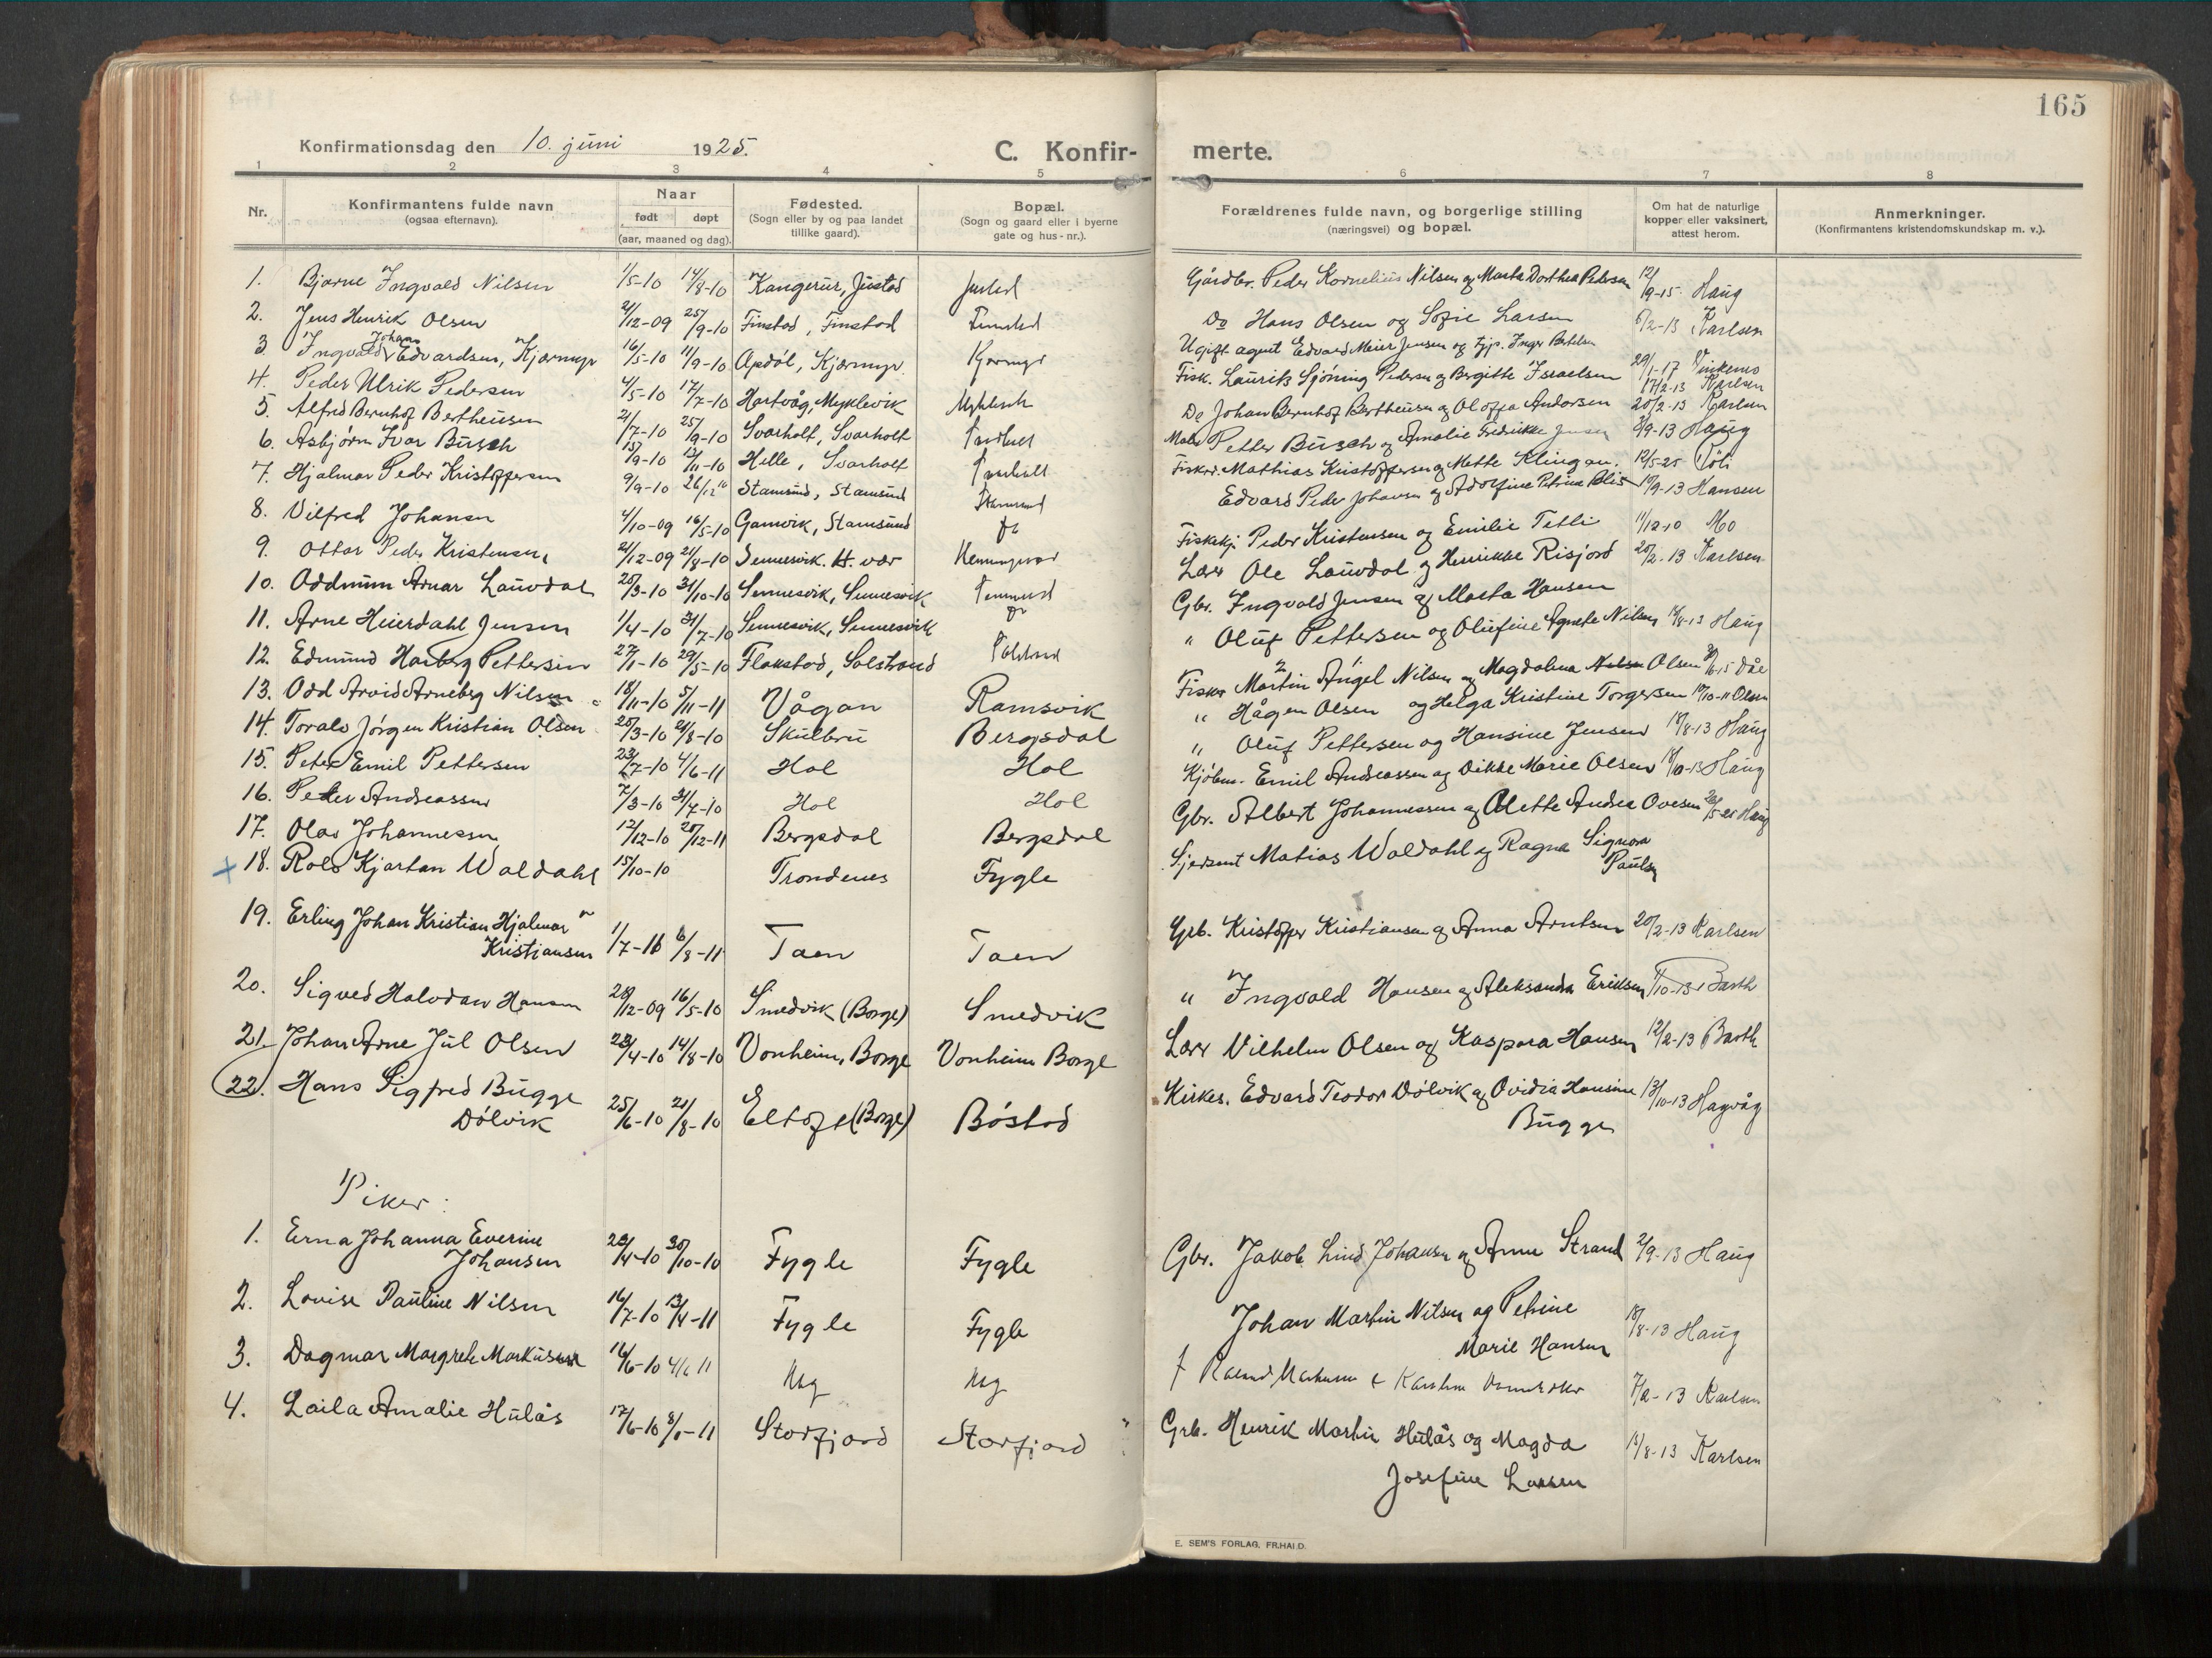 165
Konfirmationsdag den 10. juni 1925. C. Konfir- merte.
1 2 3 4 5 6 7 8
Nr.
Konfirmantens fulde navn
(ogsaa efternavn).
Naar
født døpt
(aar, maaned og dag).
Fødested.
(Sogn eller by og paa landet
tillike gaard).
Bopæl.
(Sogn og gaard eller i byerne
gate og hus-nr.).
Forældrenes fulde navn, og borgerlige stilling
(næringsvei) og bopæl.
Om hat de naturlige
kopper eller vaksinert,
attest herom.
Anmerkninger.
(Konfirmantens kristendomskundskap m. v.).
1. Bjarne Ingvald Nilsen 1/5-10 14/8-10 Kangerur, Justad Justad Gårdbr. Peder Kornelius Nilsen og Marta Dorthea Pedersen 12/9-15 Haug
2. Jens Henrik Olsen 21/12-09 25/9-10 Finstad, Finstad Finstad Do Hans Olsen og Sofie Larsen 6/2-13 Karlsen
3. Ingvald Johans Edvardsen, Kjærmyr 16/5-10 11/9-10 Opdöl, Kjærmyr. Kjærmyr Ugift agent Edvard Meier Jensen og tjp. Inger Bertelsen 29/1-17 Vinkenes
4. Peder Ulrik Pedersen 4/5-10 17/7-10 Hartvåg, Myklevik Myklevik Fisk. Laurits Sjöning Pedersen og Bergitte Israelsen 17/2-13 Karlsen
5. Alfred Bernhof Bertheusen 21/7-10 25/9-10 Svarholt, Svarholt Svarholt Do Johan Bernhof Bertheusen og Oloffa Andorsen 20/2-13 Karlsen
6. Asbjørn Ivar Busch 15/9-10 13/11-10 Helle, Svarholt Svarholt Maler Petter Busch og Amalie Fredrikke Jensen 2/9-13 Haug
7. Hjalmar Peder Kristoffersen 9/9-10 26/12 10 Stamsund, Stamsund Stamsund Fisker. Mathias Kristoffersen og Mette Klingan. 12/5-25
8. Vilfred Johansen 4/10-09 16/5-10 Gamvik, Stamsund do Edvard Peder Johansen og Adolfine Petrine 10/9-13 Hansen
9. Ottar Peder Kristensen 21/12-09 21/8-10 Sennesvik. H. vær Henningsvær Fiskekj. Peder Kristensen og Emilie Tetli 11/12 10 Mo
10. Oddmun Arnar Lauvdal 25/3-10 31/10-10 Sennesvik, Sennesvik Lærer Ole Lauvdal og Henrikke Risjord 20/2-13 Karlsen
11. Arne Heierdahl Jensen 1/4-10 31/7-10 Sennesvik, Sennesvik do Gbr. Ingvald Jensen og Marta Hansen
12. Edmund Harberg Pettersen 27/1-10 29/5-10 Flakstad, Solstrand " Oluf Pettersen og Olufine Agnete Nilsen 18/8-13 Haug
13. Odd Arvid Arneberg Nilsen 18/11-10 5/11-11 Vågan Ramsvik Fisker Martin Angel Nilsen og Magdalena Olsen 30/6-15 Dåe
14. Toralv Jörgen Kristian Olsen 25/3-10 21/8-10 Skulbru Bergsdal " Hågen Olsen og Helga Kristine Torgersen 17/10-11 Olsen
15. Peter Emil Pettersen 23/7-10 4/6-11 Hol Hol " Oluf Pettersen og Hansine Jensen 18/8-13 Haug
16. Peder Andreassen 7/3-10 31/7-10 Hol Hol Kjöbm. Emil Andreassen og Dikke Marie Olsen 14/10-13 Haug
17. Olav Johannessen 12/12-10 25/12-11 Bergsdal Bergsdal Gbr. Albert Johannessen og Olette Andrea Ovesen 26/5-25 Haug
x 18. Rolv Kjartan Waldahl 15/10-10 Trondenes Fygle Matias Waldahl og Ragna Signora
Paulsen
19. Erling Johan Kristian Hjalmar
Kristiansen 1/7-10 6/8-11 Taen Taen Grb. Kristoffer Kristiansen og Anna Arntsen 20/2-13 Karlsen
20. Sigved Halvdan Hansen 28/12-09 16/5-10 Smedvik (Borge) Smedvik " Ingvald Hansen og Aleksandra Eriksen 11/10-13 Barth
21. Johan Arne Jul Olsen 28/4-10 14/8-10 Vonheim, Borge Vonheim Borge Lærer Vilhelm Olsen og Kaspara Hansen 12/2-13 Barth
22. Hans Sigfred Bugge
Dölvik 25/6-10 21/8-10 Eltoft (Borge) Böstad Kirkes. Edvard Teodor Dölvik og Ovidia Hansine 13/10-13 Hagvåg
Bugge
Piker:
1. Erna Johanna Everine
Johansen 28/4-10 30/10-10 Fygle Fygle Gbr. Jakob Lind Johansen og Anne Strand 2/9-13 Haug
2. Lovise Pauline Nilsen 16/7-10 13/4-11 Fygle Fygle Johan Martin Nilsen og Petrine
Marie Hansen 18/8-13 Haug
3. Dagmar Margrete Markussen 16/6-10 4/6 11 Hag Hag f Markussen 7/2-13 Karlsen
4. Laila Amalie Hulås 17/6-10 8/1-11 Storfjord Storfjord Grb. Henrik Martin Hulås og Magda
Josefine Larsen 18/8-13 Karlsen
E. SEM'S FORLAG, FR.HALD.